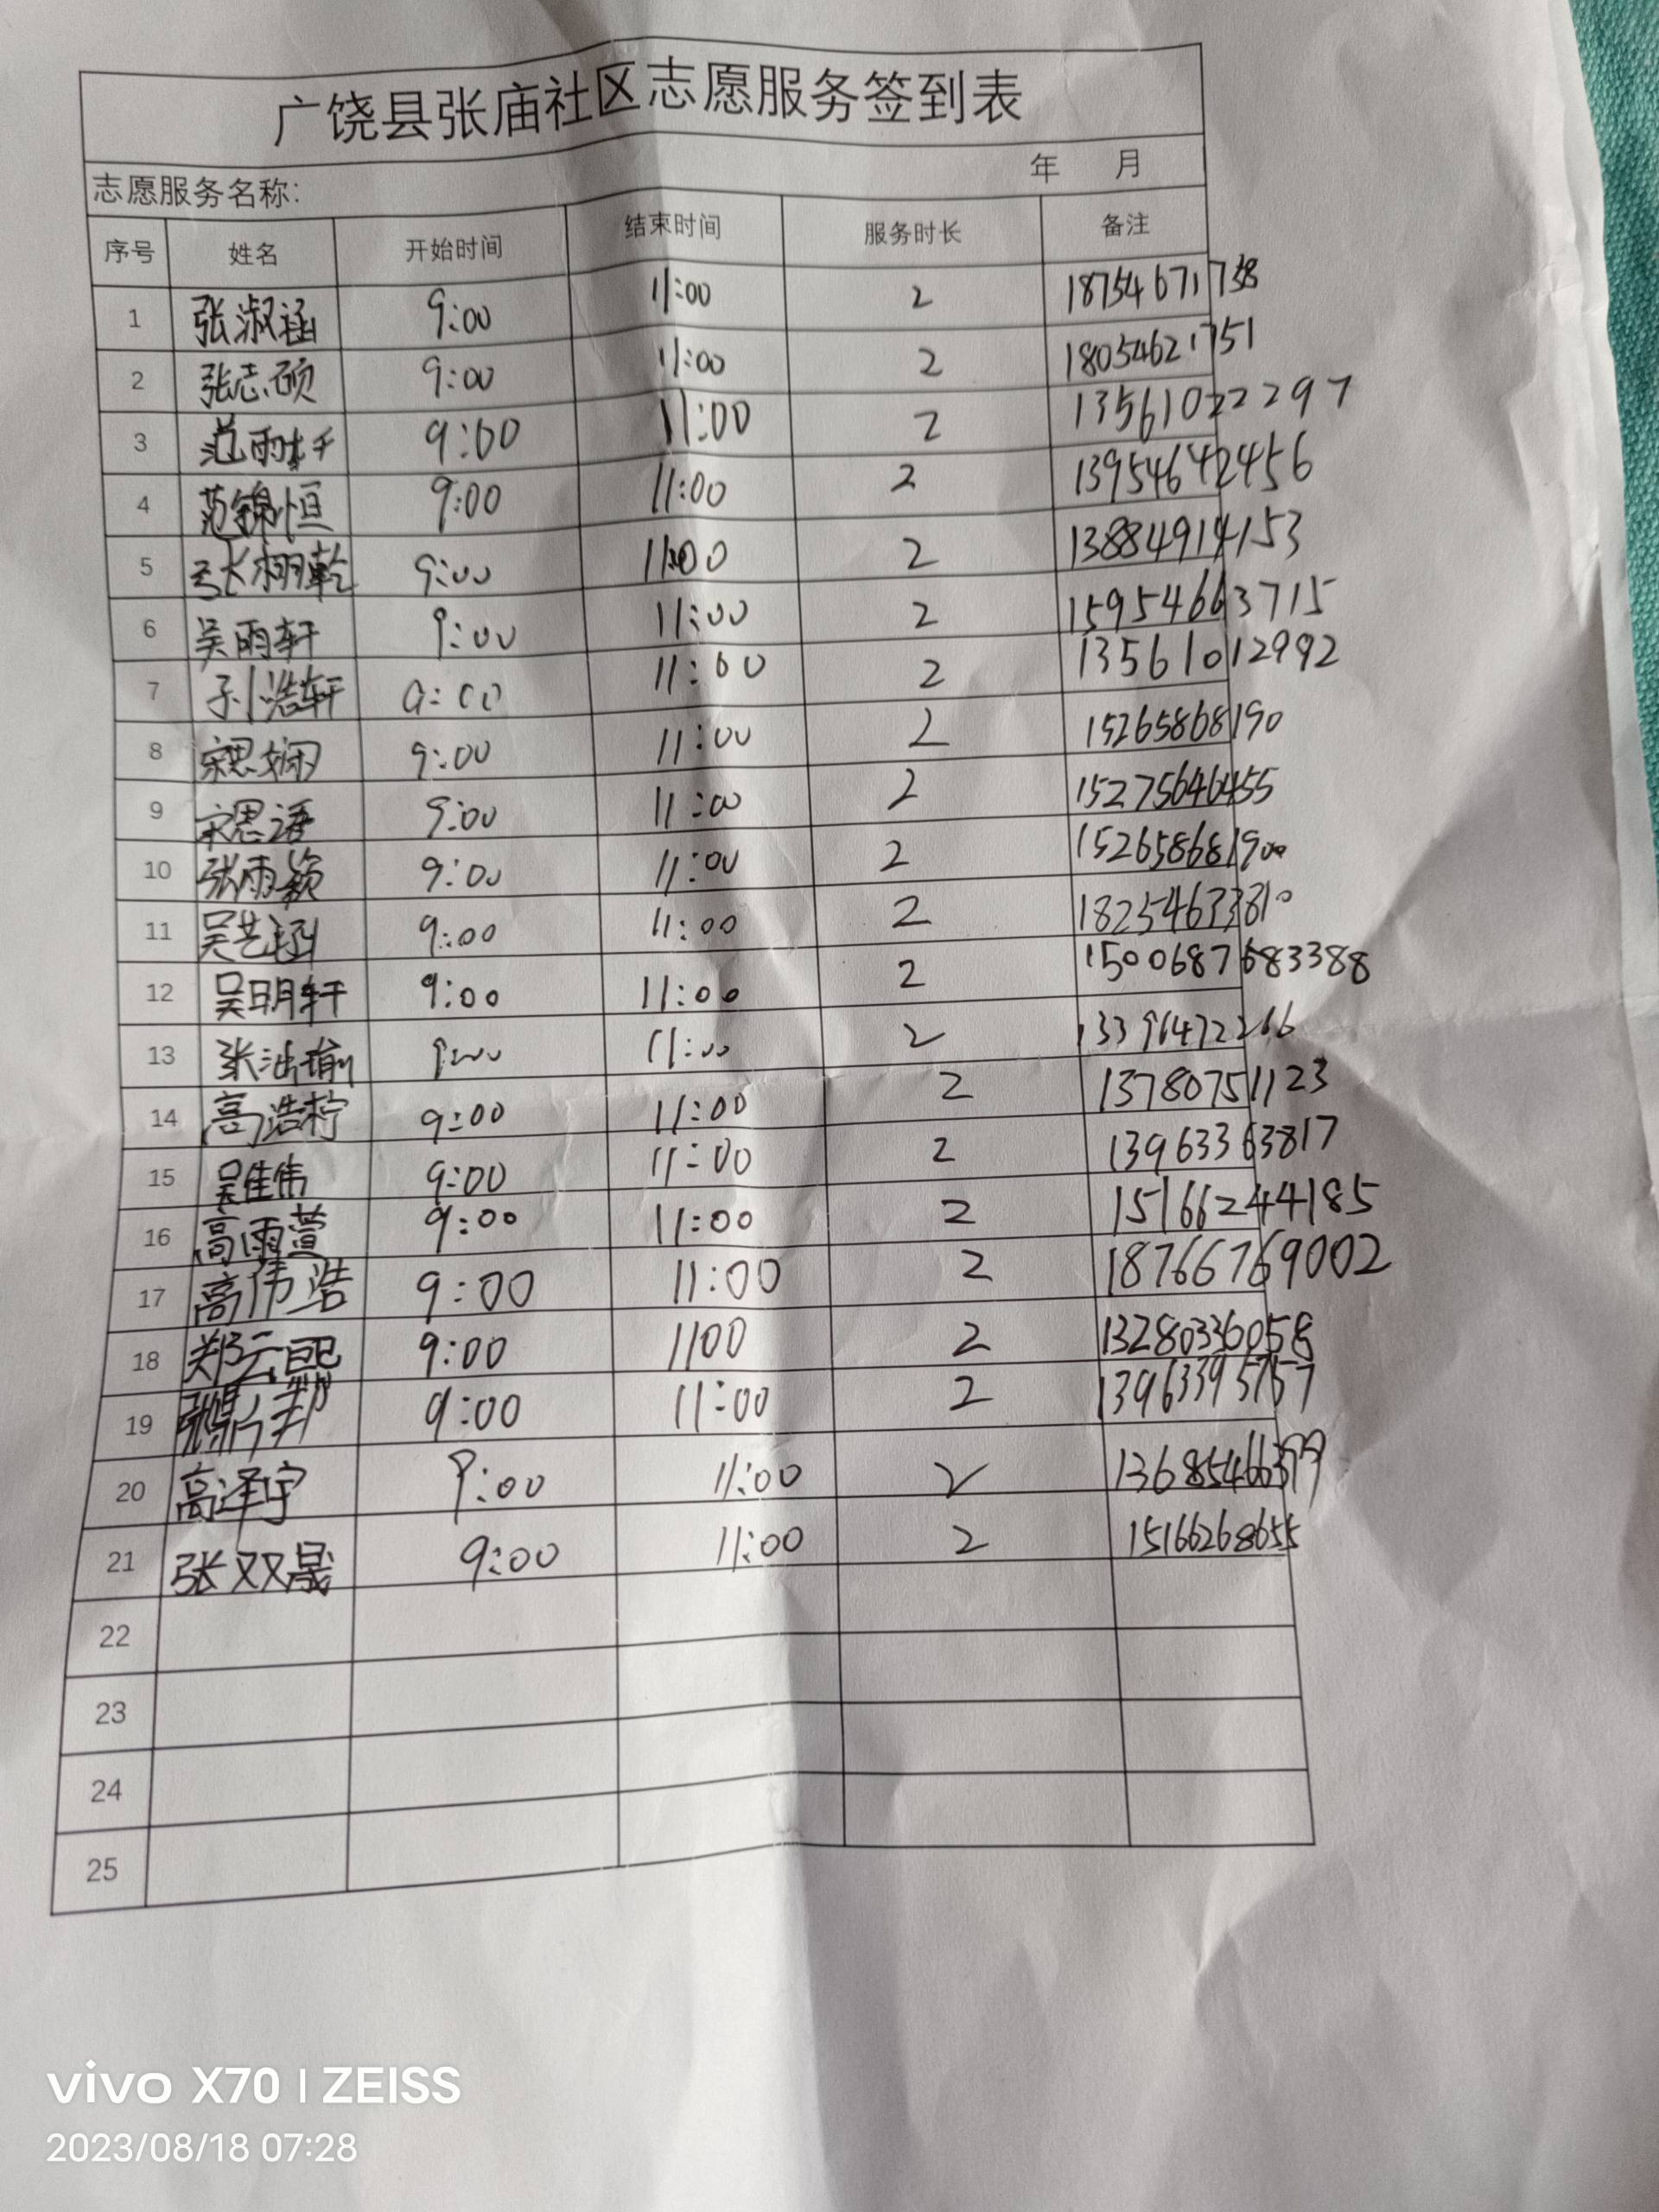 广饶县张庙社区志愿服务签到表
志愿服务名称: 年 月
序号 姓名 开始时间 结束时间 服务时长 备注
1 张淑涵 9:00 11:00 2 18754671738
2 张志硕 9:00 11:00 2 18054621751
3 范雨轩 9:00 11:00 2 13561022297
4 范锦恒 9:00 11:00 2 13954642456
5 张栩乾 9:00 11:00 2 13884914153
6 吴雨轩 9:00 11:00 2 15954663715
7 孙浩轩 9:00 11:00 2 13561012992
8 宋思娴 9:00 11:00 2 15265868190
9 宋思语 9:00 11:00 2 15275646455
10 张雨颖 9:00 11:00 2 152658681900
11 吴艺涵 9:00 11:00 2 18254633810
12 吴明轩 9:00 11:00 2 15006877683388
13 9:00 11:00 2 13396472266
14 高浩柠 9:00 11:00 2 13780751123
15 吴佳伟 9:00 11:00 2 13963363817
16 高雨萱 9:00 11:00 2 15166244185
17 高伟浩 9:00 11:00 2 18766769002
18 郑云熙 9:00 1100 2 13280336058
19 9:00 11:00 2 13963395757
20 高泽宇 9:00 11:00 2
21 张双晟 9:00 11:00 2 15166268655
22
23
24
25
vivo X70 | ZEISS
2023/08/18 07:28